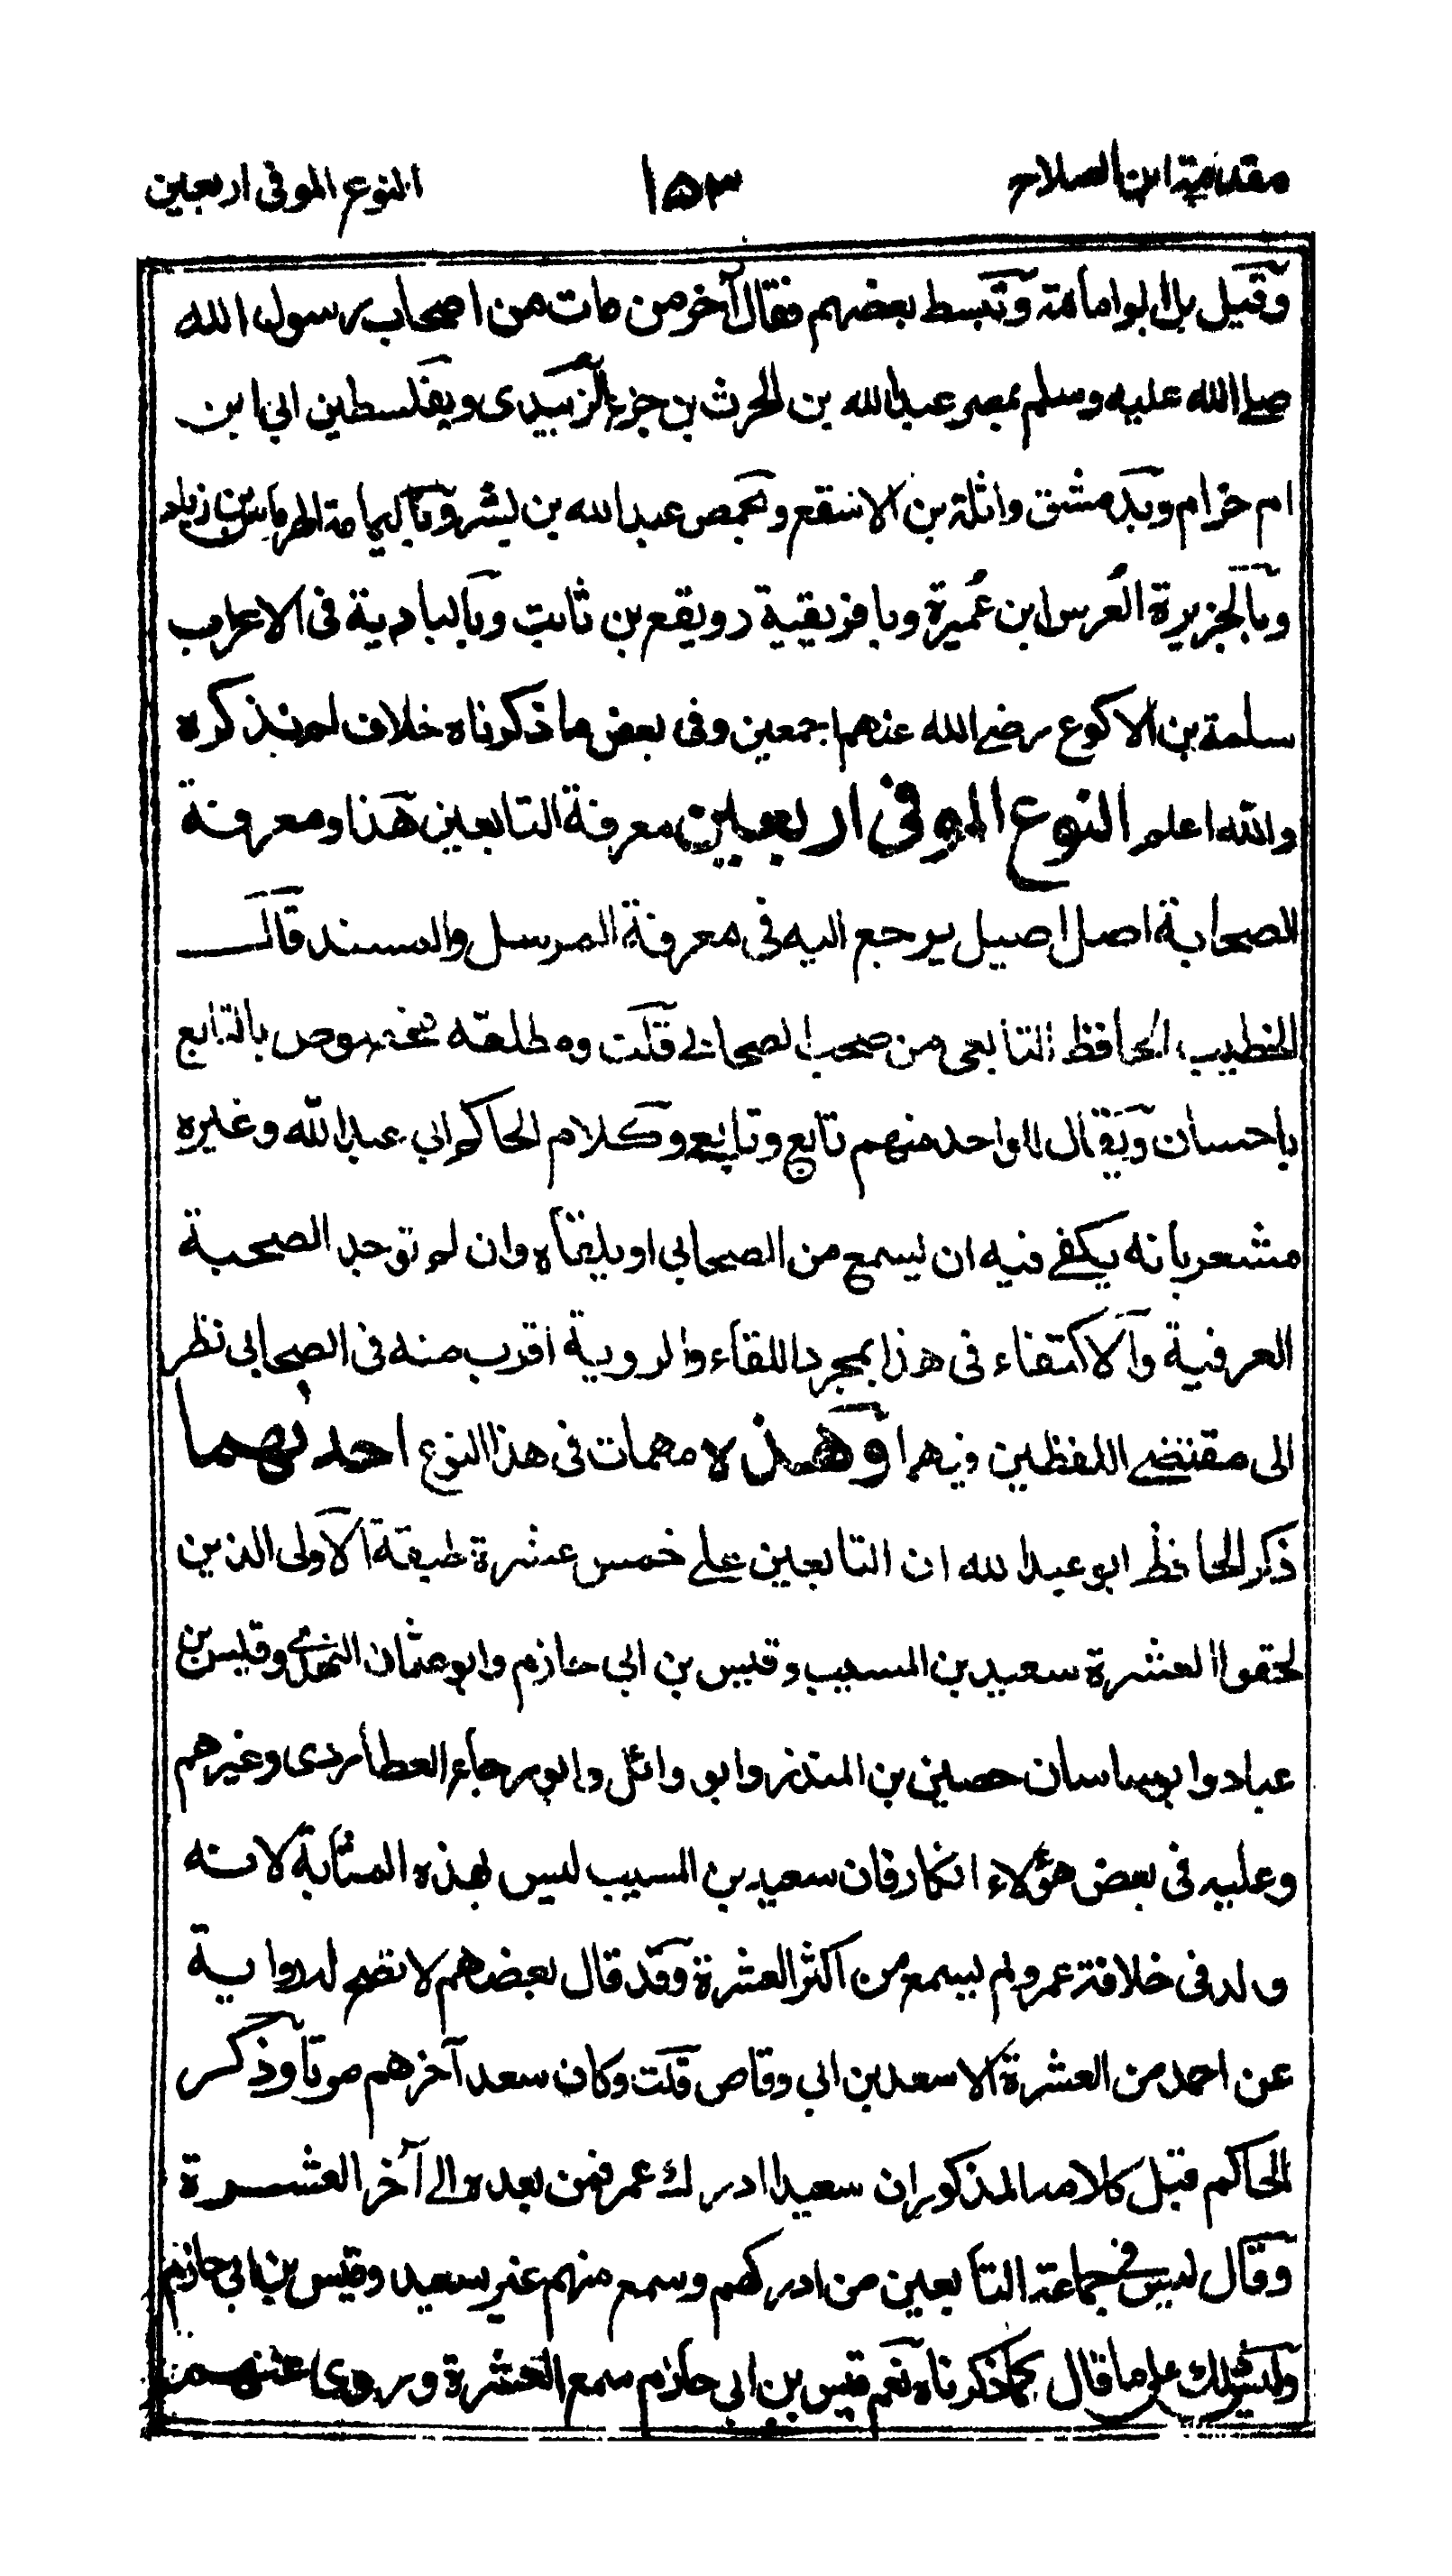 مقدمة ابن الصلاح ١٥٣ النوع الموفى اربعين
وقيل بل ابو امامة وتبسط بعضهم فقال آخر من مات من اصحاب رسول الله
صلے الله عليه وسلم بمصر عبد الله بن الحرث بن جزء الزبيدى وبفلسطين ابي ابن
ام حرام وبدمشق واثلة بن الاسقع وبحمص عبد الله بن بسر وباليمامة الهرماس بن زياد
وبالجزيرة العُرس ابن عُميرة وبافريقية رويفع بن ثابت وبالبادية فى الاعراب
سلمة بن الاكوع رضے الله عنهم اجمعين وفى بعض ما ذكرناه خلاف لم نذكره
والله اعلم النوع الموفى اربعين معرفة التابعين هذا ومعرفة
الصحابة اصل اصيل يرجع اليه فى معرفة المرسل والمسند قال
الخطيب الحافظ التابعى من صحب الصحابي قلت ومطلقه مخصوص بالتابع
باحسان ويقال للواحد منهم تابع وتابعي وكلام الحاكم ابي عبد الله وغيره
مشعر بانه يكفے فيه ان يسمع من الصحابي او يلقاه وان لم توجد الصحبة
العرفية والاكتفاء فى هذا بمجرد اللقاء والروية اقرب منه فى الصحابي نظر
الى مقتضے اللفظين فيهما وهذه مهمات فى هذا النوع احدهما
ذكر الحافظ ابو عبد الله ان التابعين علے خمس عشرة طبقة الاولى الذين
لحقوا العشرة سعيد بن المسيب وقيس بن ابي حازم وابو عثمان النهدي وقيس بن
عباد وابو ساسان حصين بن المنذر وابو وائل وابو رجاء العطاردى وغيرهم
وعليه فى بعض هؤلاء انكار فان سعيد بن المسيب ليس بهذه المثابة لانه
ولد فى خلافة عمر ولم يسمع من اكثر العشرة وقد قال بعضهم لا تصح له رواية
عن احد من العشرة الا سعد بن ابي وقاص قلت وكان سعد آخرهم موتا وذكر
الحاكم قبل كلامه المذكور ان سعيدا ادرك عمر فمن بعده الى آخر العشرة
وقال ليس فى جماعة التابعين من ادركهم وسمع منهم غير سعيد وقيس بن ابي حازم
وليس ذلك على ما قال كما ذكرناه نعم قيس بن ابي حازم سمع العشرة وروى عنهم